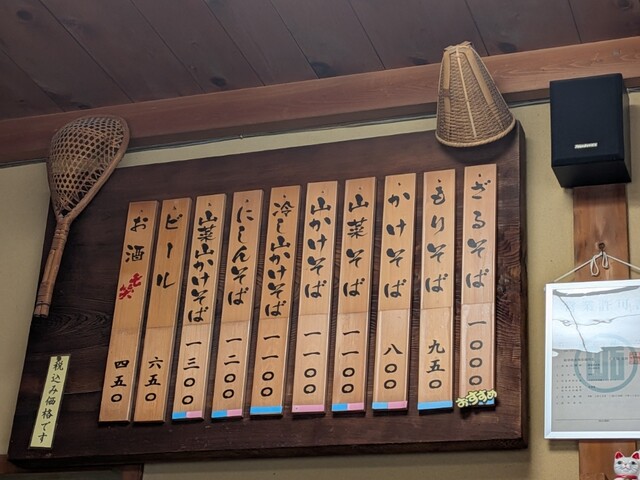 ざるそば 一〇〇〇
おすすめ
もりそば 九五〇
かけそば 八〇〇
山菜そば 一一〇〇
山かけそば 一一〇〇
冷し山かけそば 一一〇〇
にしんそば 一二〇〇
山菜山かけそば 一三〇〇
ビール 六五〇
お酒 七笑 四五〇
税込み価格です